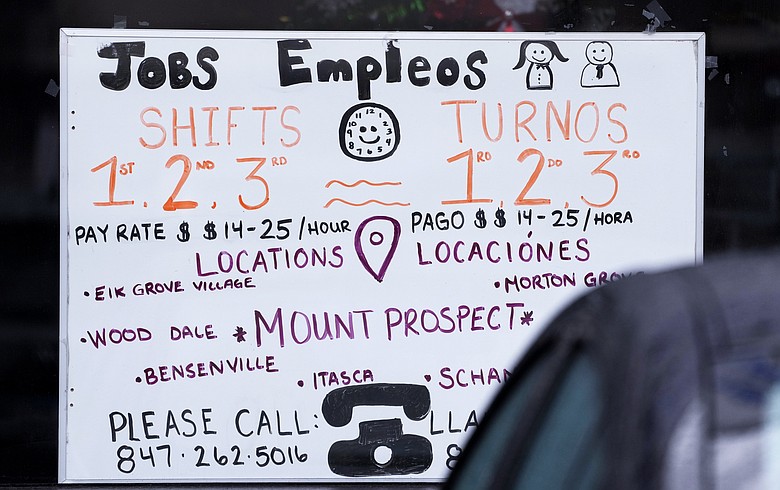 JOBS EMPLEOS
SHIFTS TURNOS
1ST, 2ND, 3RD 1RO, 2DO, 3RO
PAY RATE $ $ 14-25/HOUR PAGO $ $ 14-25/HORA
LOCATIONS LOCACIÓNES
•ElK GROVE VILLAGE •MORTON GROVE
•WOOD DALE *MOUNT PROSPECT*
•BENSENVILLE •ITASCA •
PLEASE CALL:
847·262·5016